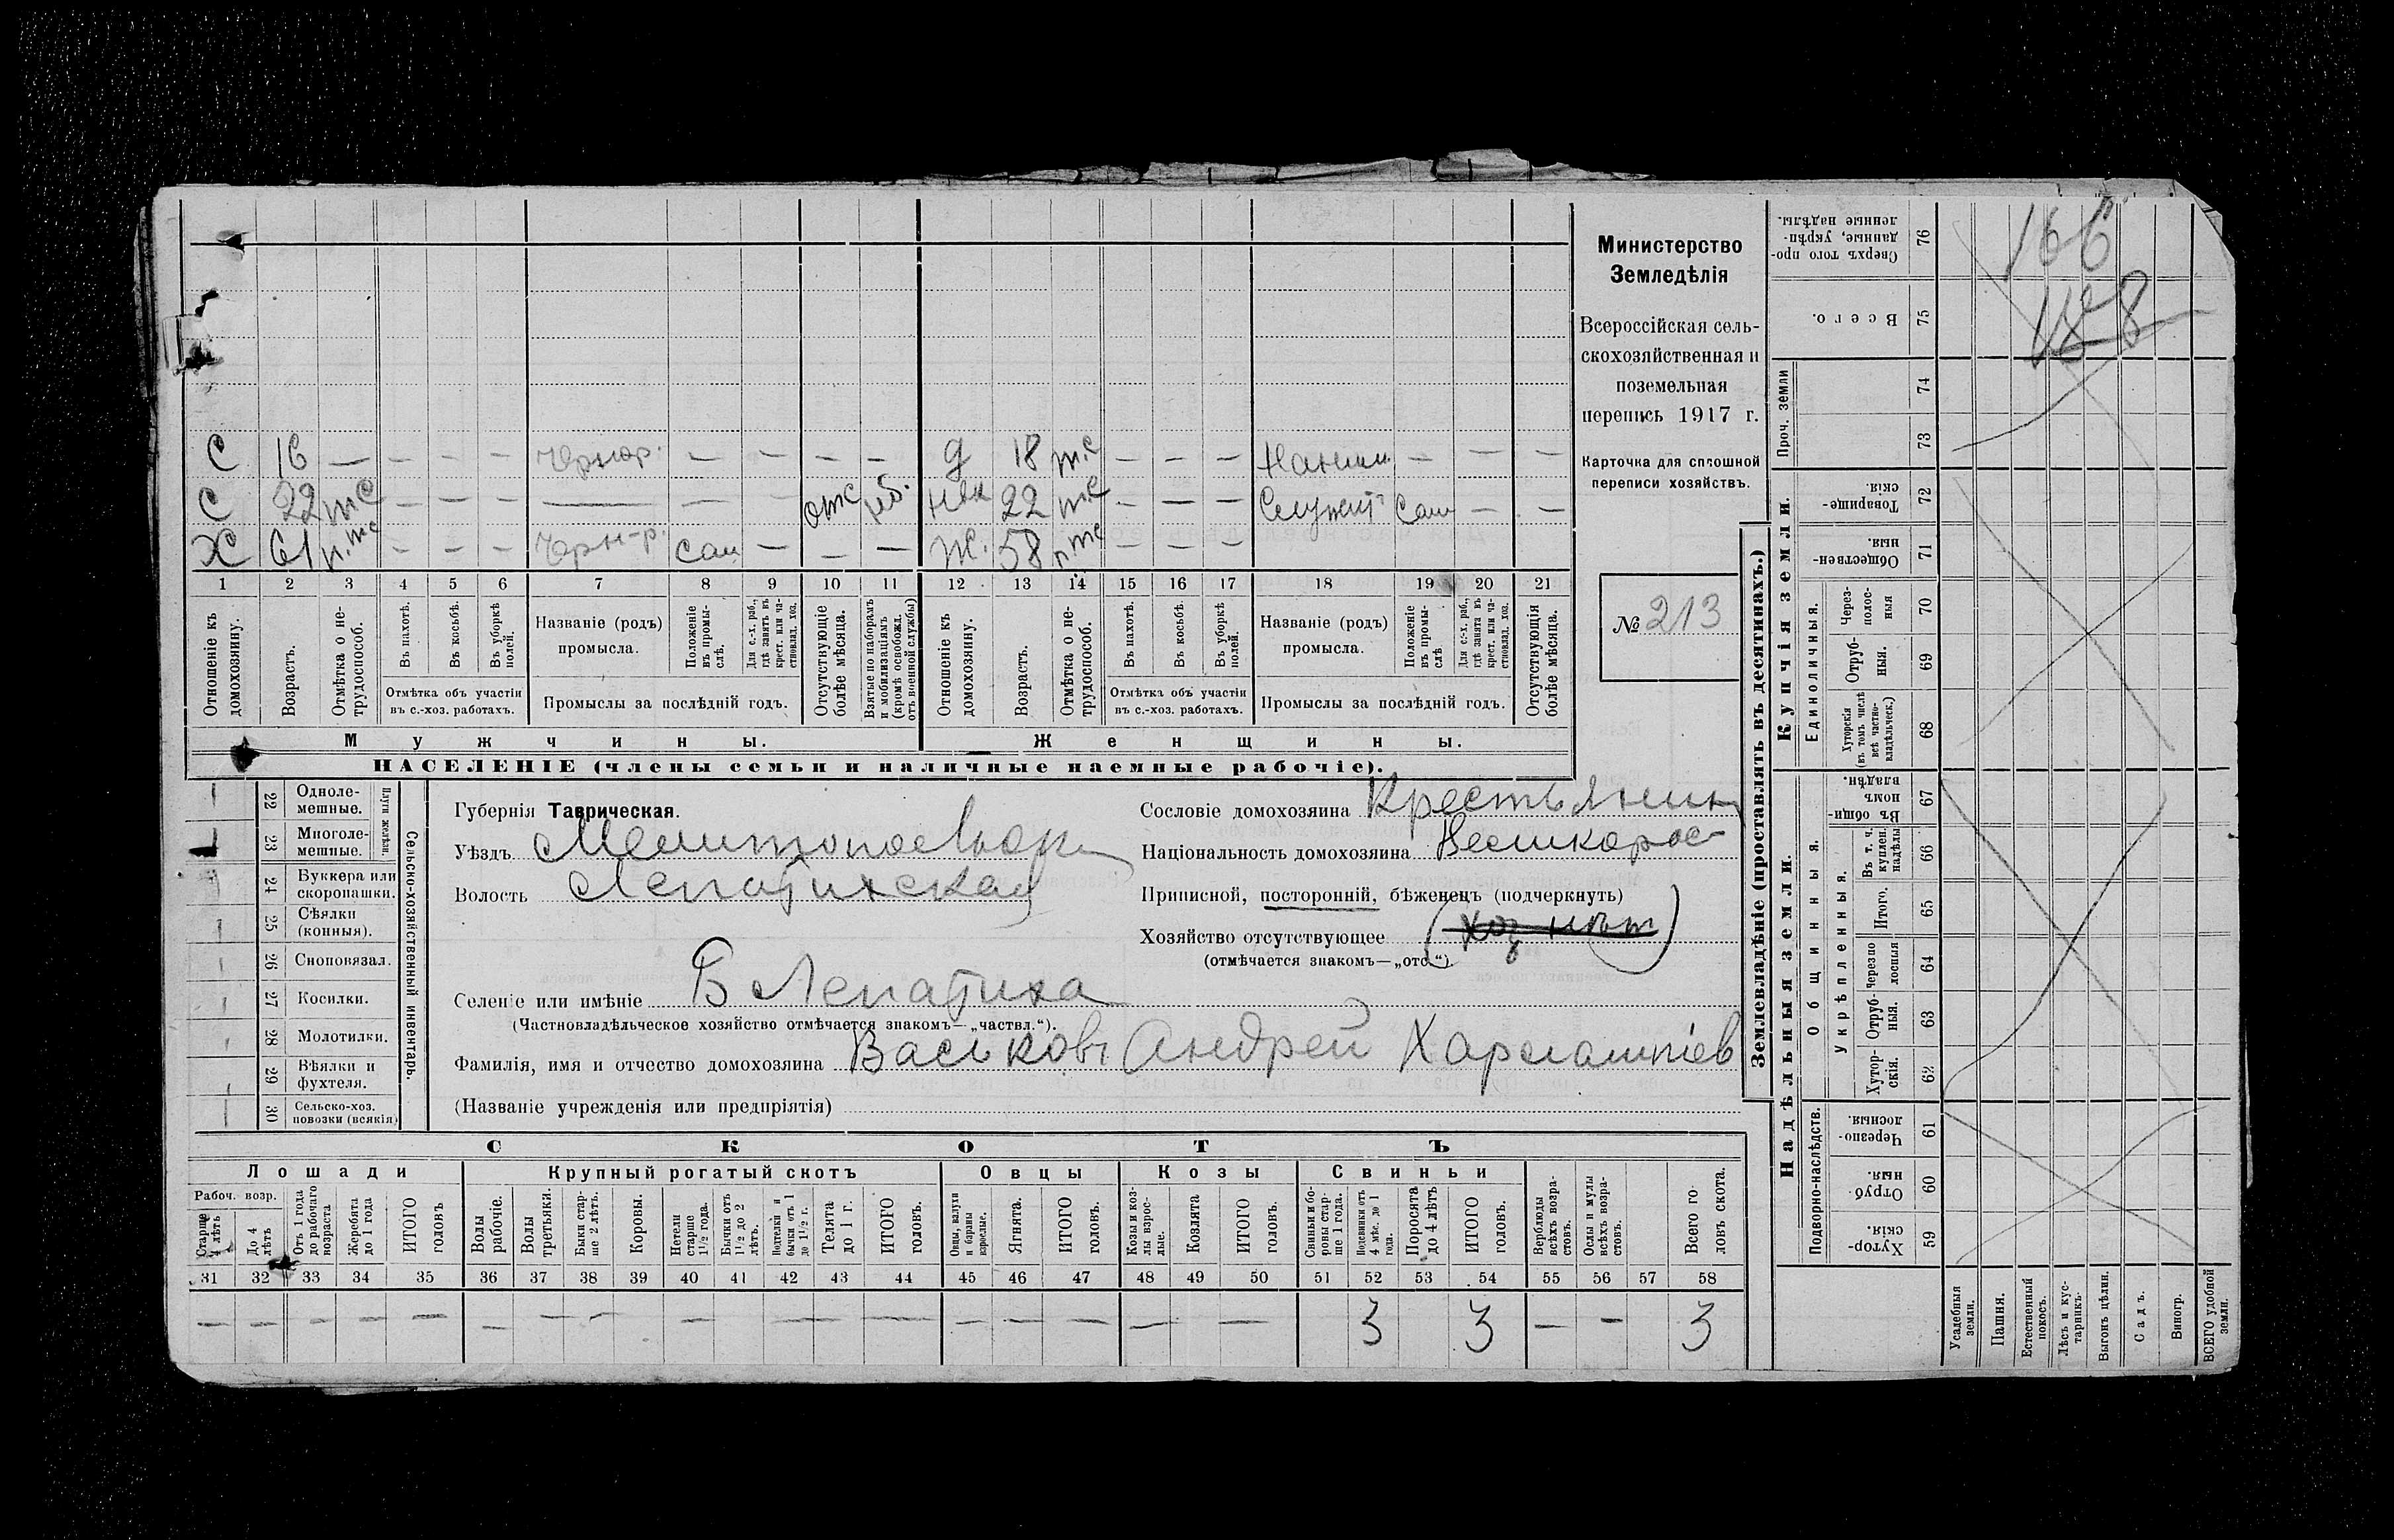 Министерство
Земледѣлія
Всероссійская сель-
скохозяйственная и
поземельная
перепись 1917 г.
Карточка для сплошной
переписи хозяйствъ.
№ 213
С 16 — — — — Чернор. — — — — д 18 т.с — — — — — —
С 22 — — — — — — отс д 22 — — — Служит Сам — —
Х 61 — — — Черн-р. Сам — — — Ж. 58 — — —
1 2 3 4 5 6 7 8 9 10 11 12 13 14 15 16 17 18 19 20 21
Отношеніе къ домохозяину.
Возрастъ.
Отмѣтка о не-трудоспособ.
Въ пахотѣ.
Въ косьбѣ.
Въ уборкѣ полей.
Отмѣтка объ участіи въ с.-хоз. работахъ.
Названіе (родъ) промысла.
Положеніе въ промы-слѣ.
Для с.-х. раб., гдѣ занятъ въ крест. или ча-стновлад. хоз.
Промыслы за послѣдній годъ.
Отсутствующіе болѣе мѣсяца.
Взятые по наборамъ и мобилизаціямъ (кромѣ освобожд. отъ военной службы)
Отношеніе къ домохозяину.
Возрастъ.
Отмѣтка о не-трудоспособ.
Въ пахотѣ.
Въ косьбѣ.
Въ уборкѣ полей.
Отмѣтка объ участіи въ с.-хоз. работахъ.
Названіе (родъ) промысла.
Положеніе въ промы-слѣ
Для с.-х. раб., гдѣ занята въ крест. или ча-стновлад. хоз.
Промыслы за послѣдній годъ.
Отсутствующія болѣе мѣсяца.
Мужчины. Женщины.
НАСЕЛЕНІЕ (члены семьи и наличные наемные рабочіе).
Сельско-хозяйственный инвентарь.
Плуги желѣзн.
22 Одноле-мешные.
23 Многоле-мешные.
24 Буккера или скоропашки.
25 Сѣялки (конныя).
26 Сноповязал.
27 Косилки.
28 Молотилки.
29 Вѣялки и фухтеля.
30 Сельско-хоз. повозки (всякія)
Губернія Таврическая.
Уѣздъ Мелитопольск
Волость Лепатихская
Селеніе или имѣніе Б Лепатиха
(Частновладѣльческое хозяйство отмѣчается знакомъ—„частвл.“).
Фамилія, имя и отчество домохозяина Васьковъ Андрей Харлампіев
(Названіе учрежденія или предпріятія)
Сословіе домохозяина Крестьянин
Національность домохозяина Великорос
Приписной, посторонній, бѣженецъ (подчеркнуть)
Хозяйство отсутствующее (Хоз нѣт)
(отмѣчается знакомъ—„отс.“)
СКОТЪ
Лошади
Крупный рогатый скотъ
Овцы
Козы
Свиньи
Рабоч. возр.
Старше 4 лѣтъ
До 4 лѣтъ
Отъ 1 года до рабочаго возраста
Жеребята до 1 года
ИТОГО головъ
Волы рабочіе.
Волы третьяки.
Быки стар-ше 2 лѣтъ.
Коровы.
Нетели старше 1½ года.
Бычки отъ 1½ до 2 лѣтъ.
Подтелки и бычки отъ 1 до 1½ г.
Телята до 1 г.
ИТОГО головъ.
Овцы, валухи и бараны взрослые.
Ягнята.
ИТОГО головъ.
Козы и коз-лы взрос-лые.
Козлята
ИТОГО головъ.
Свиньи и бо-ровы стар-ше 1 года.
Подсвинки отъ 4 мѣс. до 1 года.
Поросята до 4 лѣтъ
ИТОГО головъ.
Верблюды всѣхъ возра-стовъ.
Ослы и мулы всѣхъ возра-стовъ.
Всего го-ловъ скота.
31 32 33 34 35 36 37 38 39 40 41 42 43 44 45 46 47 48 49 50 51 52 53 54 55 56 57 58
— — — — — — — — — — — — — — — — — 3 3 — — 3
Землевладѣніе (проставлять въ десятинахъ.)
Надѣльныя земли.
Купчія земли.
Проч. земли
Подворно-наслѣдств.
Общинныя.
Укрѣпленныя.
Единоличныя.
59 Хутор-скія.
60 Отруб-ныя.
61 Черезпо-лосныя.
62 Хутор-скія.
63 Отруб-ныя.
64 Черезпо-лосныя
65 Итого.
66 Въ т. ч. куплен. надѣлы
67 Въ общи-номъ владѣн.
68 Хуторскія (въ томъ числѣ всѣ частно-владѣльческ.)
69 Отруб-ныя.
70 Через-полос-ныя
71 Обществен-ныя.
72 Товарище-скія.
73
74
75 Всего.
76 Сверхъ того про-данные, укрѣп-ленные надѣлы.
Усадебныя земли.
Пашня.
Естественный покосъ.
Лѣсъ и кус-тарникъ.
Выгонъ цѣлин.
Садъ.
Виногр.
ВСЕГО удобной земли.
166